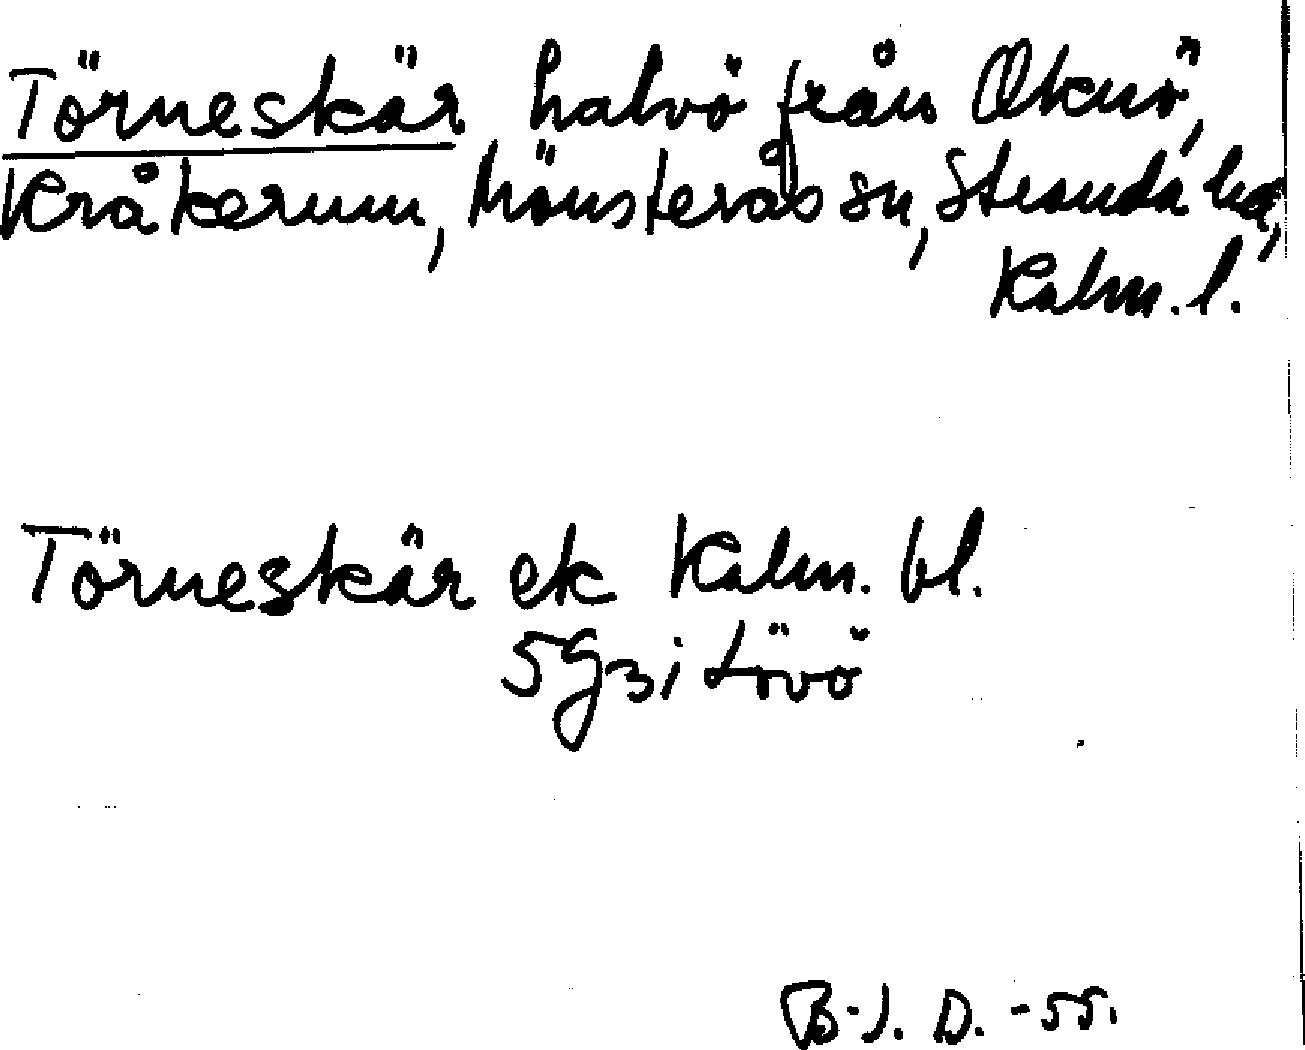 Törneskär halvö från Oknö,
Kråkerum, Mönsterås sn, Stranda hd,
Kalm. l.
Törneskär ek Kalm. bl.
5 g 3 i Lövö
B-J. D. -55.